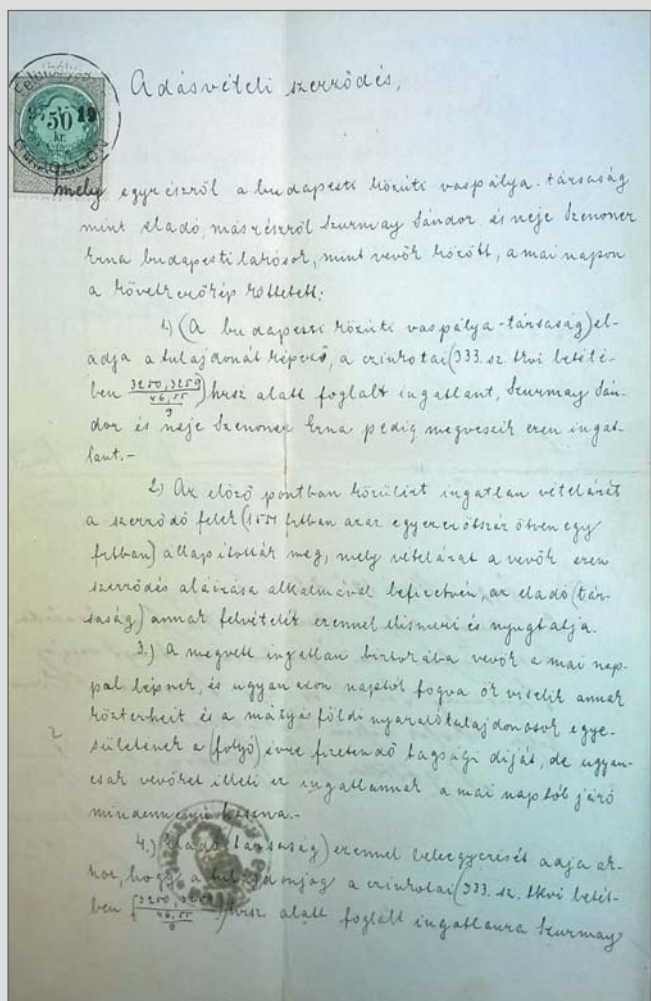 50
kr.
19
Adásvételi szerződés,
mely egyrészről a budapesti közúti vaspálya-társaság
mint eladó, másrészről Szurmay Sándor és neje Szenoner
Erna budapesti lakósok, mint vevők között, a mai napon
a következőkép köttetett:
1.) (A budapesti közúti vaspálya-társaság) el-
adja a tulajdonát képező, a czinkotai (333. sz. tkvi betété-
ben 3250, 3259 / 46, 55 / 9) hrsz alatt foglalt ingatlant, Szurmay Sán-
dor és neje Szenoner Erna pedig megveszik ezen ingat-
lant.-
2.) Az előző pontban körülírt ingatlan vételárát
a szerződő felek (1551 frtban azaz egyezerötszáz ötven egy
frtban) állapították meg, mely vételárat a vevők ezen
szerződés aláírása alkalmával befizetvén, az eladó (tár-
saság) annak felvételét ezennel elismeri és nyugtatja.
3.) A megvett ingatlan birtokába vevők a mai nap-
pal lépnek, és ugyanazon naptól fogva ők viselik annak
közterheit és a mátyásföldi nyaralótulajdonosok egye-
sületének a (folyó) évre fizetendő tagsági díját, de ugyan-
csak vevőket illeti ez ingatlannak a mai naptól járó
mindennemű haszna.-
4.) Eladó (társaság) ezennel beleegyezését adja ah-
hoz, hogy a tulajdonjog a czinkotai (333. sz. tkvi betét-
ben 3250, 3259 / 46, 55 / 9) hrsz alatt foglalt ingatlanra Szurmay